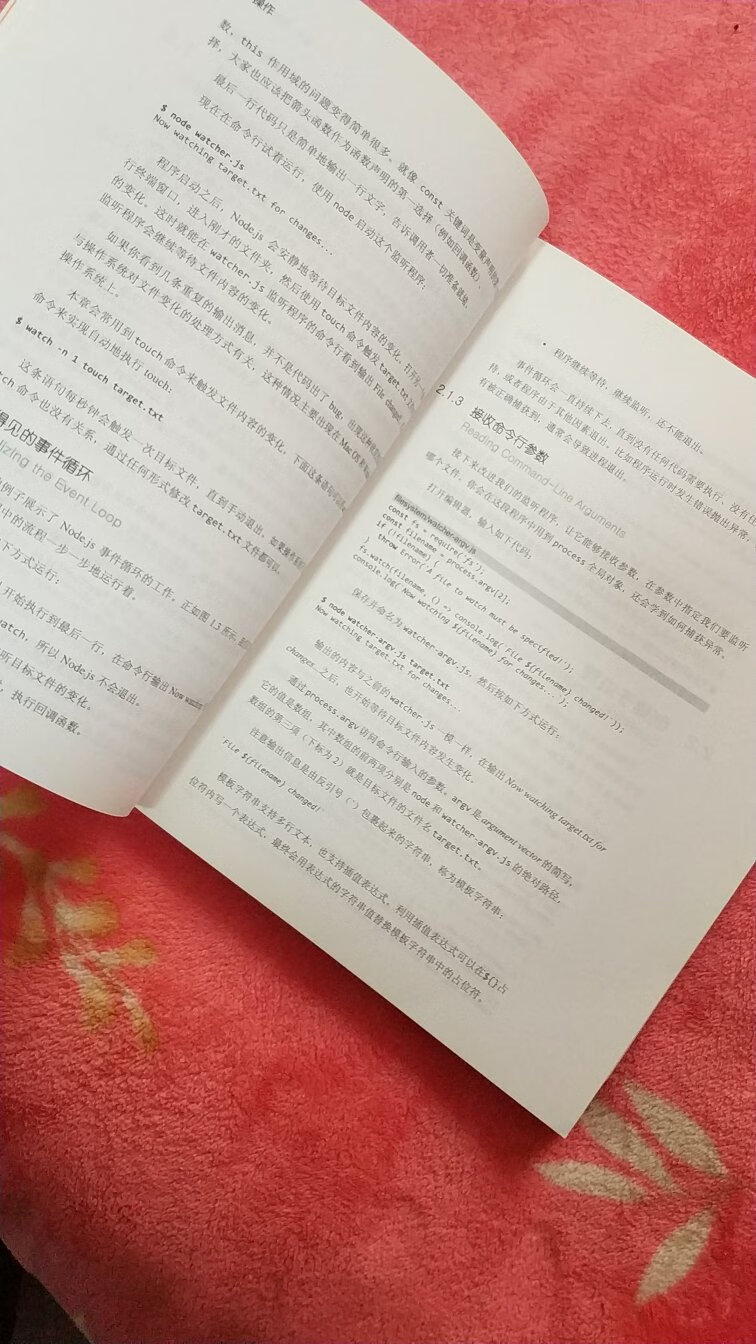 操作
数，this 作用域的问题变得简单很多。就像 const 关键词是变量声明的
择，大家也应该把箭头函数作为函数声明的第一选择（例如回调函数）。
最后一行代码只是简单地输出一行文字，告诉调用者一切准备就绪。
现在在命令行试着运行，使用 node 启动这个监听程序：
$ node watcher.js
Now watching target.txt for changes...
程序启动之后，Node.js 会安静地等待目标文件内容的变化。打开另一
行终端窗口，进入刚才的文件夹，然后使用 touch 命令触发 target.txt
的变化。这时就能在 watcher.js 监听程序的命令行看到输出 File changed!
监听程序会继续等待文件内容的变化。
如果你看到几条重复的输出消息，并不是代码出了 bug，出现这种
与操作系统对文件变化的处理方式有关，这种情况主要出现在 Mac OS
操作系统上。
本章会常用到 touch 命令来触发文件内容的变化，下面这条语句
命令来实现自动地执行 touch:
$ watch -n 1 touch target.txt
这条语句每秒钟会触发一次目标文件，直到手动退出。如果
tch 命令也没有关系，通过任何形式修改 target.txt 文件都可以。
得见的事件循环
lizing the Event Loop
例子展示了 Node.js 事件循环的工作。正如图 1.3 所示，
中的流程一步一步地运行着。
下方式运行：
开始执行到最后一行，在命令行输出 Now
watch，所以 Node.js 不会退出。
听目标文件的变化。
，执行回调函数。
• 程序继续等待，继续监听，还不能退出。
事件循环会一直持续下去，直到没有任何代码需要执行、没有任
待，或者程序由于其他因素退出。比如程序运行时发生错误抛出异常，
有被正确捕获到，通常会导致进程退出。
2.1.3 接收命令行参数
Reading Command-Line Arguments
接下来改进我们的监听程序，让它能够接收参数，在参数中指定我们要监听
哪个文件。你会在这段程序中用到 process 全局对象，还会学到如何捕获异常。
打开编辑器，输入如下代码：
filesystem/watcher-argv.js
const fs = require('fs');
const filename = process.argv[2];
if (!filename) {
throw Error('A file to watch must be specified!');
}
fs.watch(filename, () => console.log(`File ${filename} changed!`));
console.log(`Now watching ${filename} for changes...`);
保存并命名为 watcher-argv.js，然后按如下方式运行：
$ node watcher-argv.js target.txt
Now watching target.txt for changes...
输出的内容与之前的 watcher.js 一模一样，在输出 Now watching target.txt for
changes...之后，也开始等待目标文件内容发生变化。
通过 process.argv 访问命令行输入的参数。argv 是 argument vector 的简写，
它的值是数组，其中数组的前两项分别是 node 和 watcher-argv.js 的绝对路径，
数组的第三项（下标为 2）就是目标文件的文件名 target.txt。
注意输出信息是由反引号（`）包裹起来的字符串，称为模板字符串：
`File ${filename} changed!`
模板字符串支持多行文本，也支持插值表达式。利用插值表达式可以在${}占
位符内写一个表达式，最终会用表达式的字符串值替换模板字符串中的占位符。